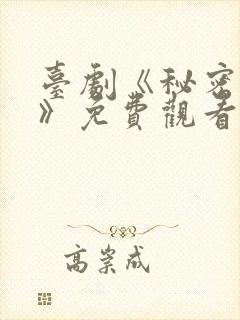 臺劇《秘密
》免費觀看
高崇成